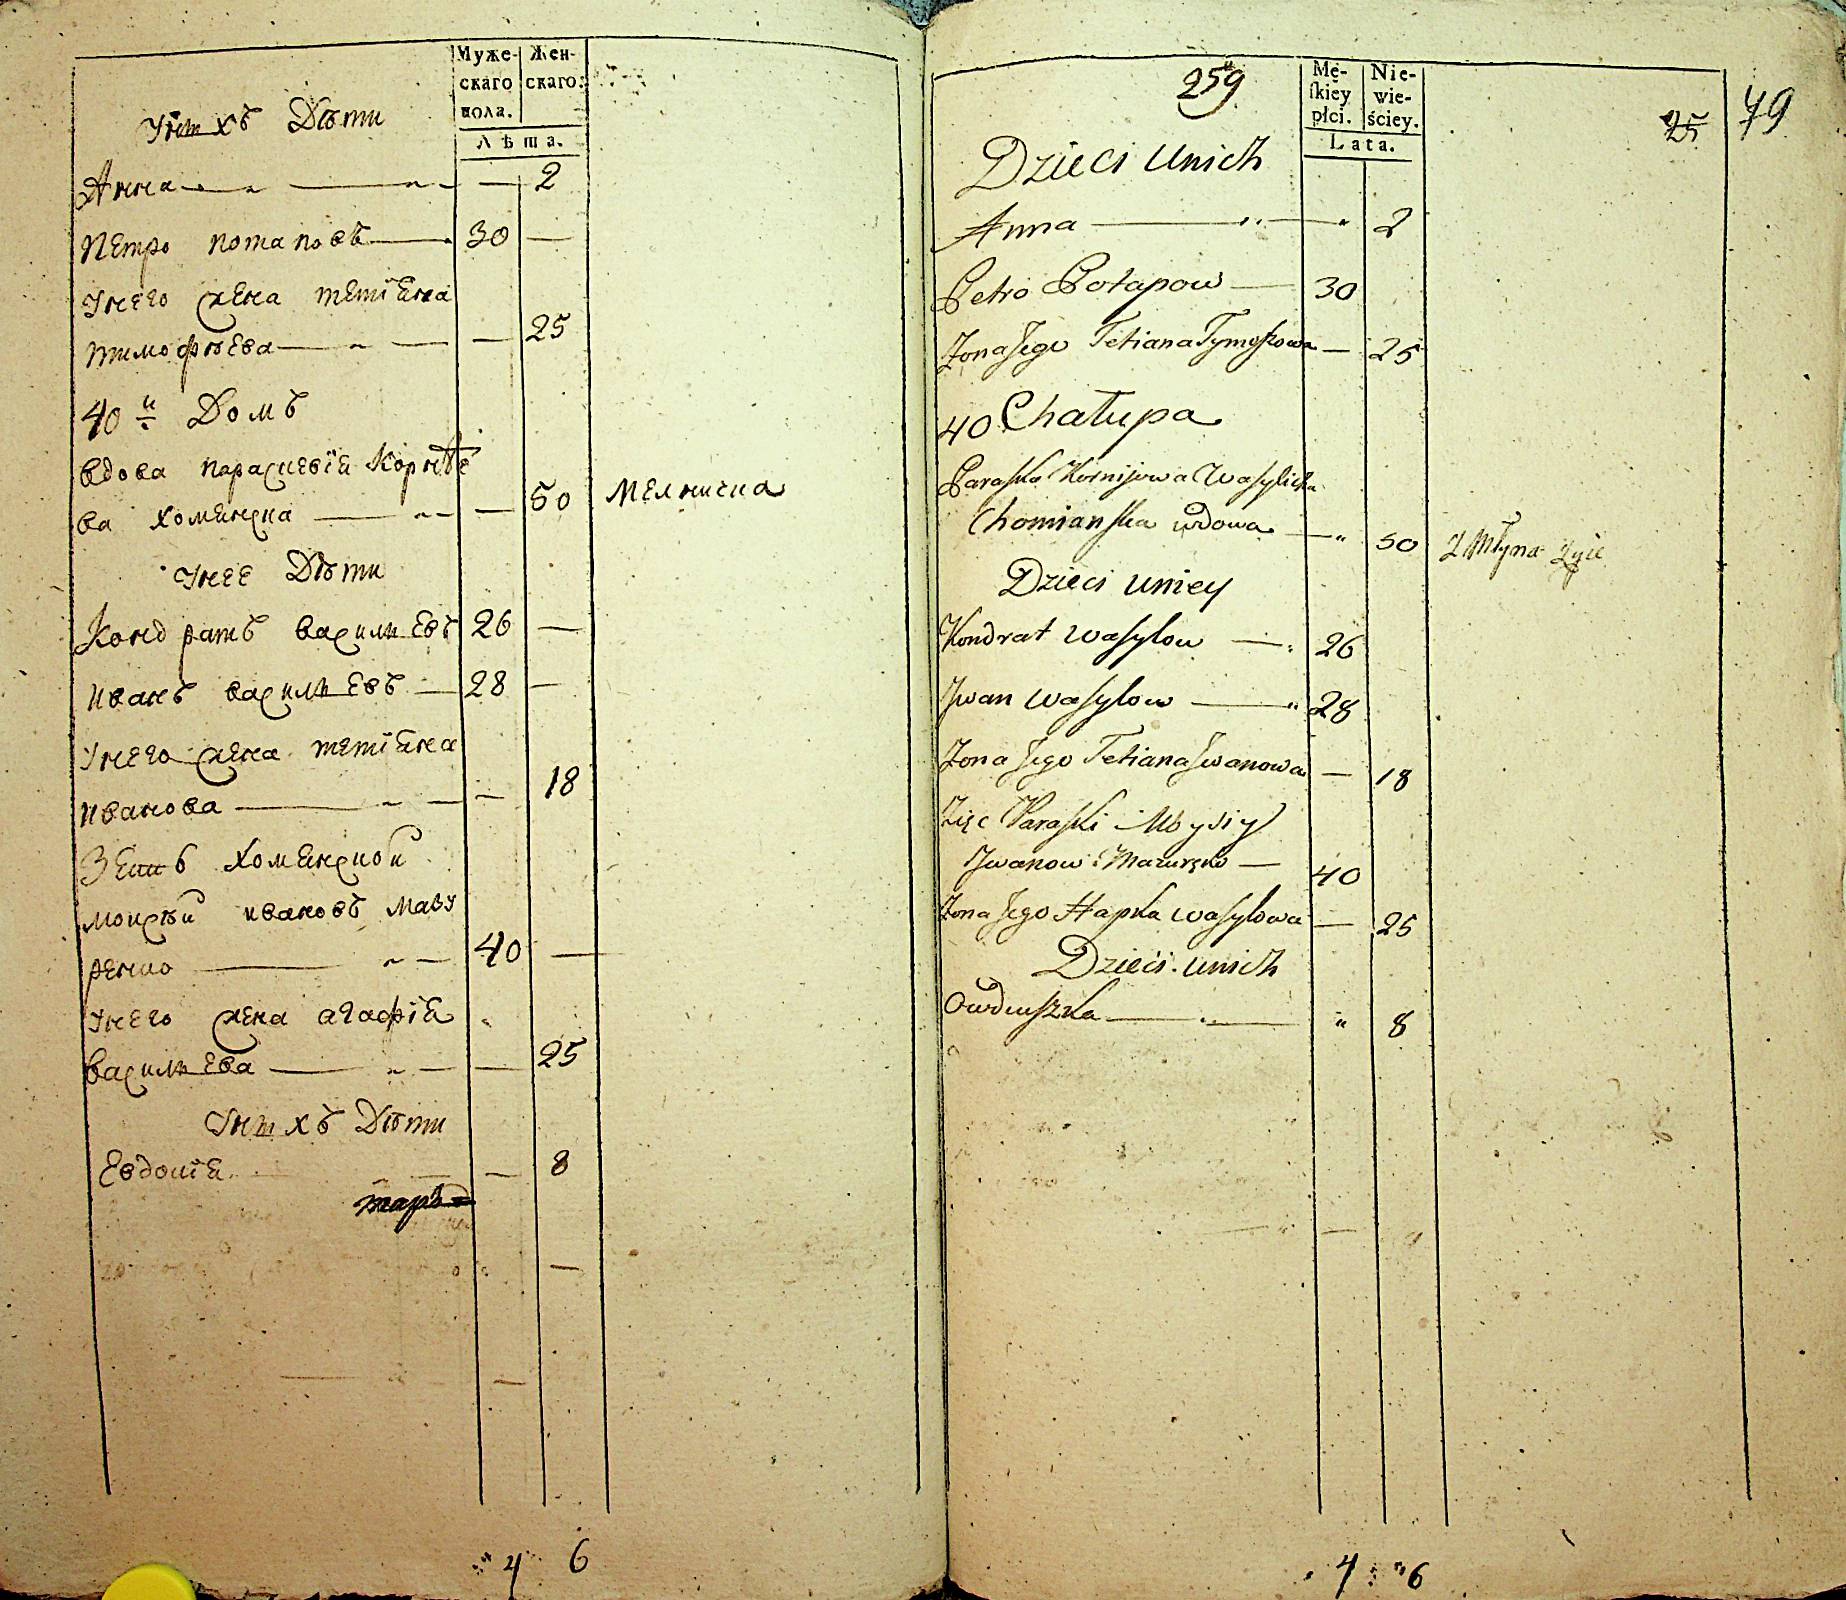 Муже-
скаго
пола.
Жен-
скаго:
Лѣта.
Унихъ Дѣти
Анна — — 2
Петро Потаповъ — 30 —
Унего жена тетіяна
тимофѣева — — 25
40й Домъ
вдова параскевія Корнѣе
ва хомянска — — 50 Мелничка
Унее Дѣти
Кондратъ василиевъ 26 —
иванъ василиевъ — 28 —
Унего жена тетіяна
иванова — — 18
Зеть хомянской
моисѣй ивановъ мазу
ренко — 40 —
Унего жена агафія
василиева — — 25
Унихъ Дѣти
Евдокія — 8
4 6
259
Mę-
skiey
płci.
Nie-
wie-
ściey.
Lata.
25 79
Dzieci unich
Anna — „ 2
Petro Potapow — 30
Zona Jego Tetiana Tymoszowa — 25
40 Chałupa
Paraska Kornijowa Wasylicha
Chomianska wdowa — „ 50 Z Młyna żyie
Dzieci uniey
Kondrat Wasylow — 26
Jwan Wasylow — 28
Zona Jego Tetiana Jwanowa — 18
Zięc Paraski Moysiy
Jwanow Mazurenko — 40
Zona Jego Hapka Wasylowa — 25
Dzieci unich
Owduszka — „ 8
4 6